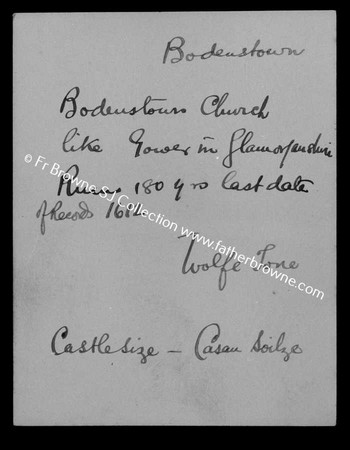 Bodenstown
Bodenstown Church
like Gower in Glamorganshire
Ruin. 180 yrs last date
of Records 1682
Wolfe Tone
Castlesize — Casan Soilze
© Fr Browne SJ Collection www.fatherbrowne.com